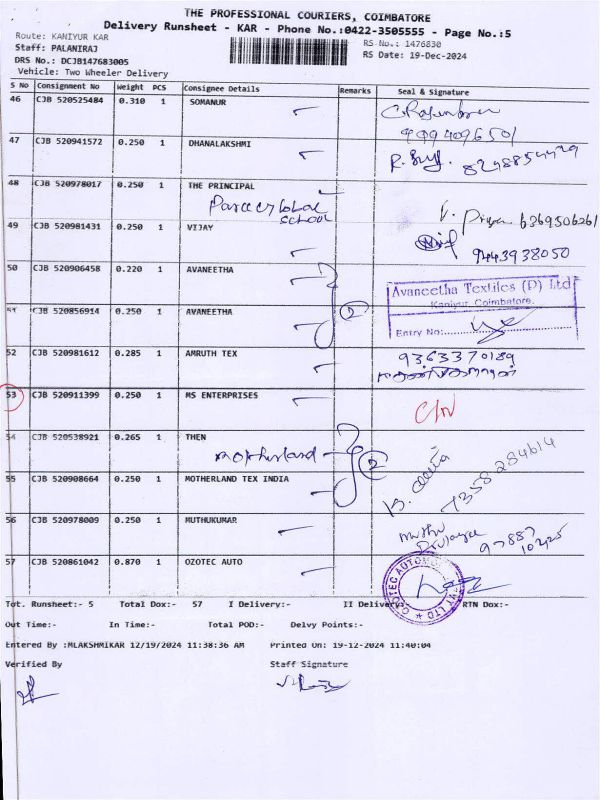 THE PROFESSIONAL COURIERS, COIMBATORE
Delivery Runsheet - KAR - Phone No.:0422-3505555 - Page No.:5
Route: KANIYUR KAR
RS No.: 1476830
Staff: PALANIRAJ
RS Date: 19-Dec-2024
DRS No.: DCJB147683005
Vehicle: Two Wheeler Delivery
S No Consignment No Weight PCS Consignee Details Remarks Seal & Signature
46 CJB 520525484 0.310 1 SOMANUR
9994096501
47 CJB 520941572 0.250 1 DHANALAKSHMI
8248854429
48 CJB 520978017 0.250 1 THE PRINCIPAL
SCHOOL
V. Priya 6369506261
49 CJB 520981431 0.250 1 VIJAY
9443938050
50 CJB 520906458 0.220 1 AVANEETHA
Avaneetha Textiles (P) Ltd
Kaniyur, Coimbatore.
51 CJB 520856914 0.250 1 AVANEETHA 2
Entry No:
52 CJB 520981612 0.285 1 AMRUTH TEX 9363370189
53 CJB 520911399 0.250 1 MS ENTERPRISES
54 CJB 520538921 0.265 1 THEN
motherland 2
7358284614
55 CJB 520908664 0.250 1 MOTHERLAND TEX INDIA
56 CJB 520978009 0.250 1 MUTHUKUMAR
Muthu
97887
10225
57 CJB 520861042 0.870 1 OZOTEC AUTO
OZOTEC AUTOMOBILE PVT LTD
Tot. Runsheet:- 5 Total Dox:- 57 I Delivery:- II Delivery:- RTN Dox:-
Out Time:- In Time:- Total POD:- Delvy Points:-
Entered By :MLAKSHMIKAR 12/19/2024 11:38:36 AM Printed On: 19-12-2024 11:40:04
Verified By Staff Signature